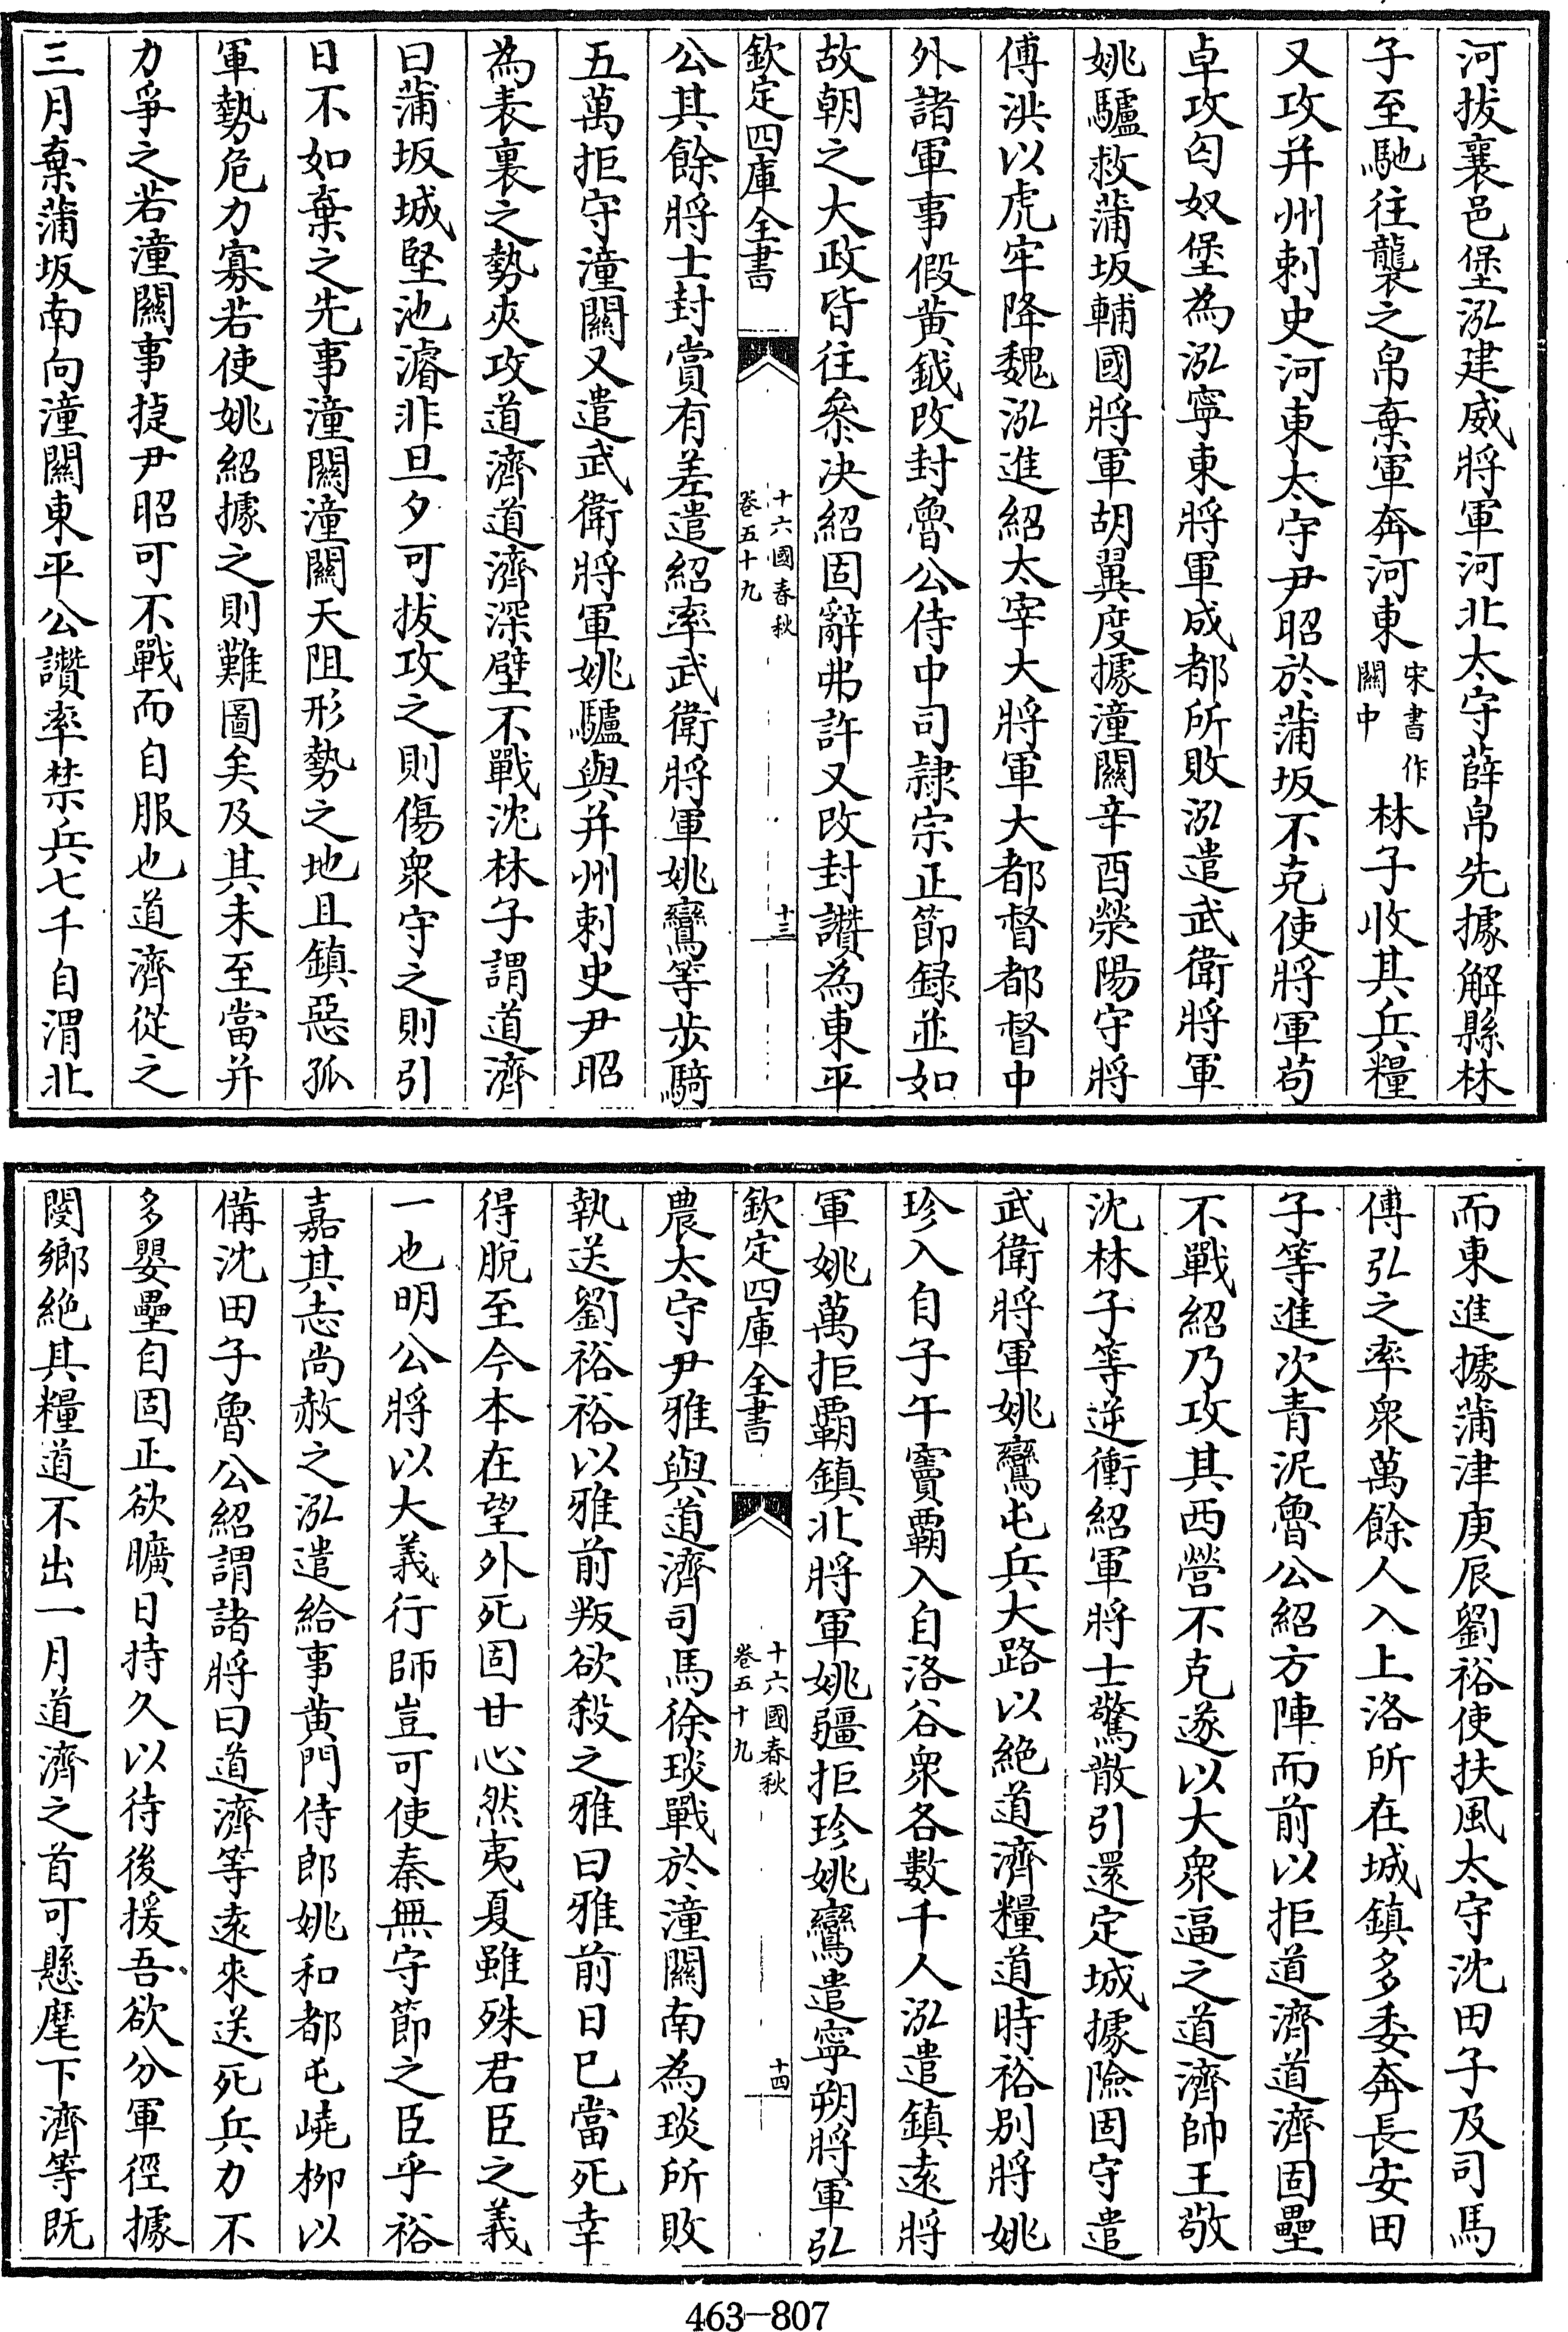 河拔襄邑堡泓建威將軍河北太守薛帛先據解縣林
子至馳往襲之帛棄軍奔河東宋書作關中林子收其兵糧
又攻并州刺史河東太守尹昭於蒲坂不克使將軍苟
卓攻匈奴堡為泓寧東將軍成都所敗泓遣武衛將軍
姚驢救蒲坂輔國將軍胡翼度據潼關辛酉滎陽守將
傅洪以虎牢降魏泓進紹太宰大將軍大都督都督中
外諸軍事假黃鉞改封魯公侍中司隸宗正節錄並如
故朝之大政皆往叅決紹固辭弗許又改封讚為東平
欽定四庫全書
十六國春秋
卷五十九
十三
公其餘將士封賞有差遣紹率武衛將軍姚鸞等步騎
五萬拒守潼關又遣武衛將軍姚驢與并州刺史尹昭
為表裏之勢夾攻道濟道濟深壁不戰沈林子謂道濟
曰蒲坂城堅池濬非旦夕可拔攻之則傷衆守之則引
日不如棄之先事潼關潼關天阻形勢之地且鎮惡孤
軍勢危力寡若使姚紹據之則難圖矣及其未至當并
力爭之若潼關事捷尹昭可不戰而自服也道濟從之
三月棄蒲坂南向潼關東平公讚率禁兵七千自渭北
而東進據蒲津庚辰劉裕使扶風太守沈田子及司馬
傅弘之率衆萬餘人入上洛所在城鎮多委奔長安田
子等進次青泥魯公紹方陣而前以拒道濟道濟固壘
不戰紹乃攻其西營不克遂以大衆逼之道濟帥王敬
沈林子等逆衝紹軍將士驚散引還定城據險固守遣
武衛將軍姚鸞屯兵大路以絕道濟糧道時裕別將姚
珍入自子午竇霸入自洛谷衆各數千人泓遣鎮遠將
軍姚萬拒霸鎮北將軍姚疆拒珍姚鸞遣寧朔將軍弘
欽定四庫全書
十六國春秋
卷五十九
十四
農太守尹雅與道濟司馬徐琰戰於潼關南為琰所敗
執送劉裕裕以雅前叛欲殺之雅曰雅前日已當死幸
得脫至今本在望外死固甘心然夷夏雖殊君臣之義
一也明公將以大義行師豈可使秦無守節之臣乎裕
嘉其志尚赦之泓遣給事黃門侍郎姚和都屯嶢柳以
備沈田子魯公紹謂諸將曰道濟等遠來送死兵力不
多嬰壘自固正欲曠日持久以待後援吾欲分軍徑據
閿鄉絕其糧道不出一月道濟之首可懸麾下濟等既
463-807